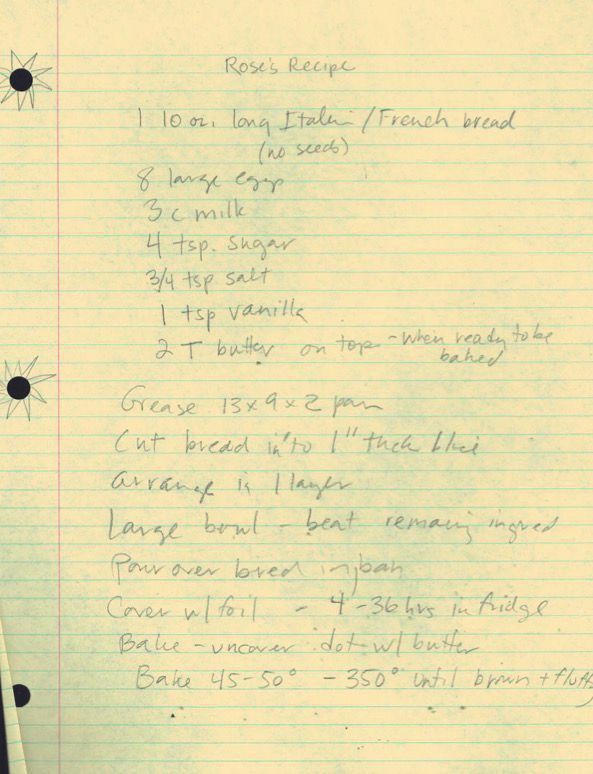 Rose's Recipe
1 10 oz. long Italian / French bread
(no seeds)
8 large eggs
3 c milk
4 tsp. sugar
3/4 tsp salt
1 tsp vanilla
2 T butter on top - when ready to be
baked
Grease 13x9x2 pan
Cut bread into 1" thick
Arrange in 1 layer
Large bowl - beat remaing ingred
Pour over bred in pan
Cover w/ foil - 4-36 hrs in fridge
Bake - uncover dot w/ butter
Bake 45-50° - 350° until brown + fluffy